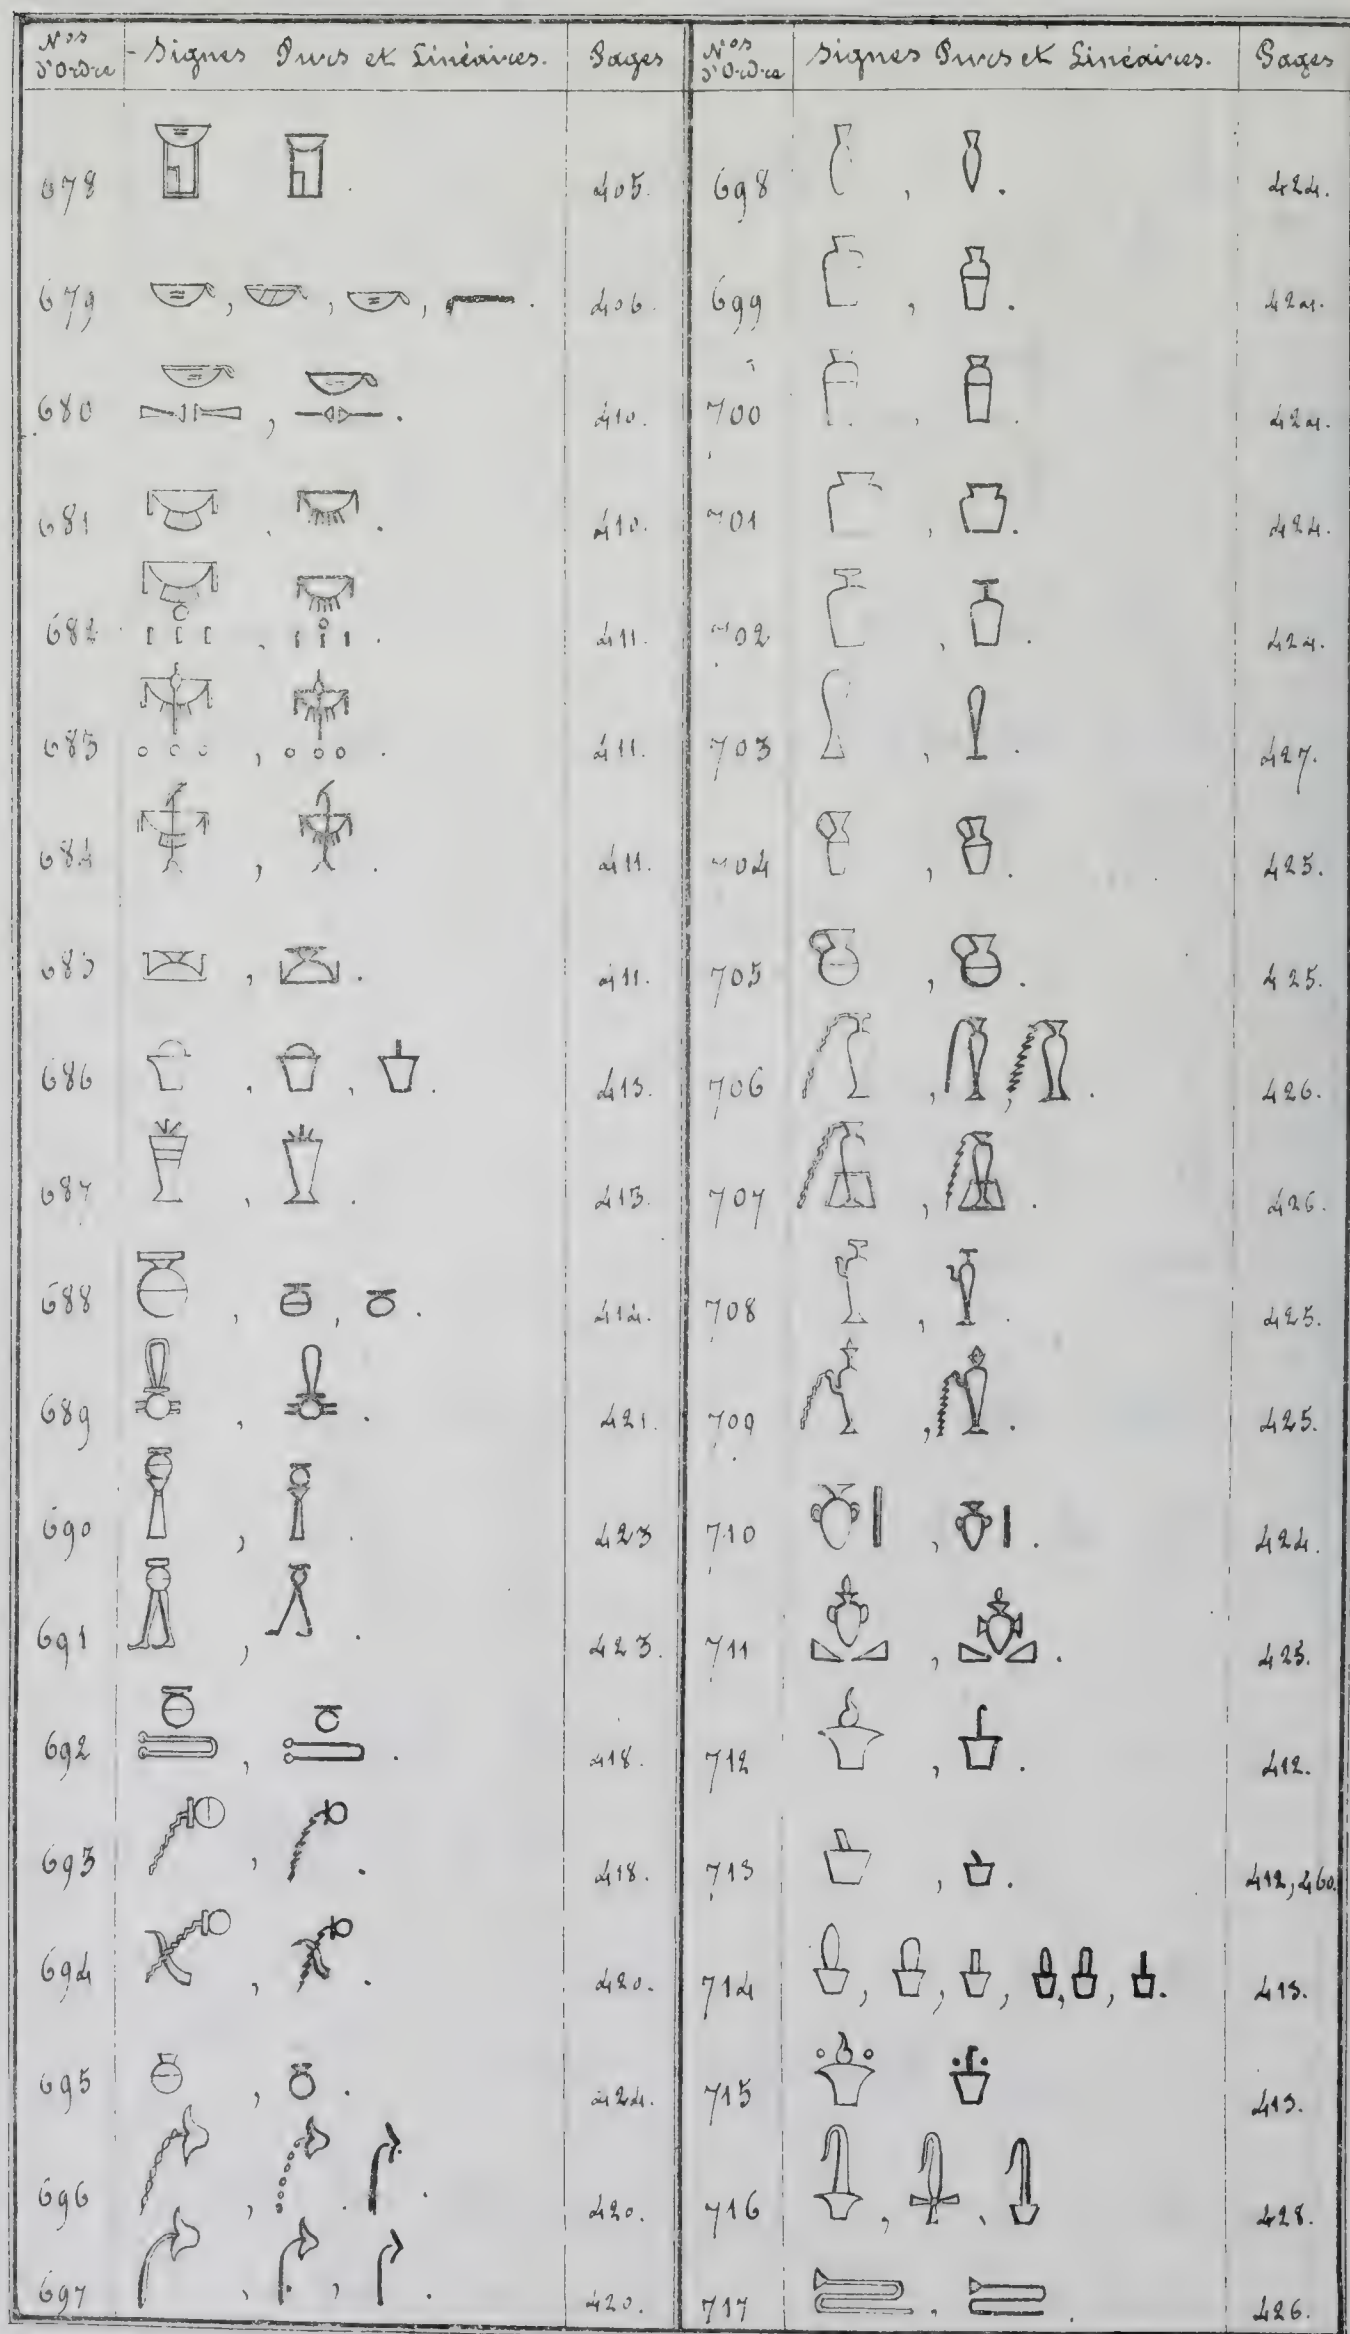 Nos d'Ordre Signes Purs et Linéaires. Pages
678 405.
679 406.
680 410.
681 410.
682 411.
683 411.
684 411.
685 411.
686 413.
687 413.
688 414.
689 421.
690 423
691 423.
692 418.
693 418.
694 420.
695 424.
696 420.
697 420.
Nos d'Ordre Signes Purs et Linéaires. Pages
698 424.
699 424.
700 424.
701 424.
702 424.
703 427.
704 425.
705 425.
706 426.
707 426.
708 425.
709 425.
710 424.
711 425.
712 412.
713 412, 460.
714 413.
715 413.
716 428.
717 426.